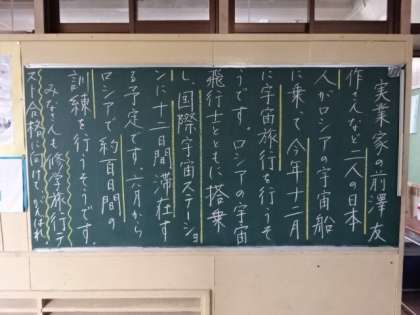 実業家の前澤友
作さんなど二人の日本
人がロシアの宇宙船
に乗って今年十二月
に宇宙旅行を行うそ
うです。ロシアの宇宙
飛行士とともに搭乗
し、国際宇宙ステーショ
ンに十二日間滞在す
る予定です。六月から
ロシアで約百日間の
訓練を行うそうです。
みなさんも修学旅行テ
スト合格に向けてがんばれ